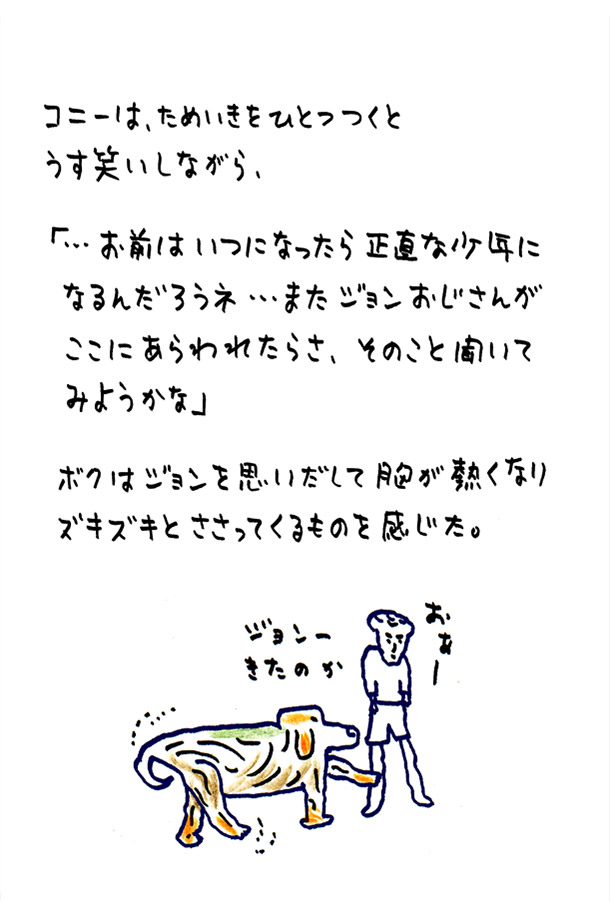 コニーは、ためいきをひとつつくと
うす笑いしながら、
「…お前はいつになったら正直な少年に
なるんだろうネ…またジョンおじさんが
ここにあらわれたらさ、そのこと聞いて
みようかな」
ボクはジョンを思いだして胸が熱くなり
ズキズキとささってくるものを感じた。
ジョンー
きたのか
おぉー